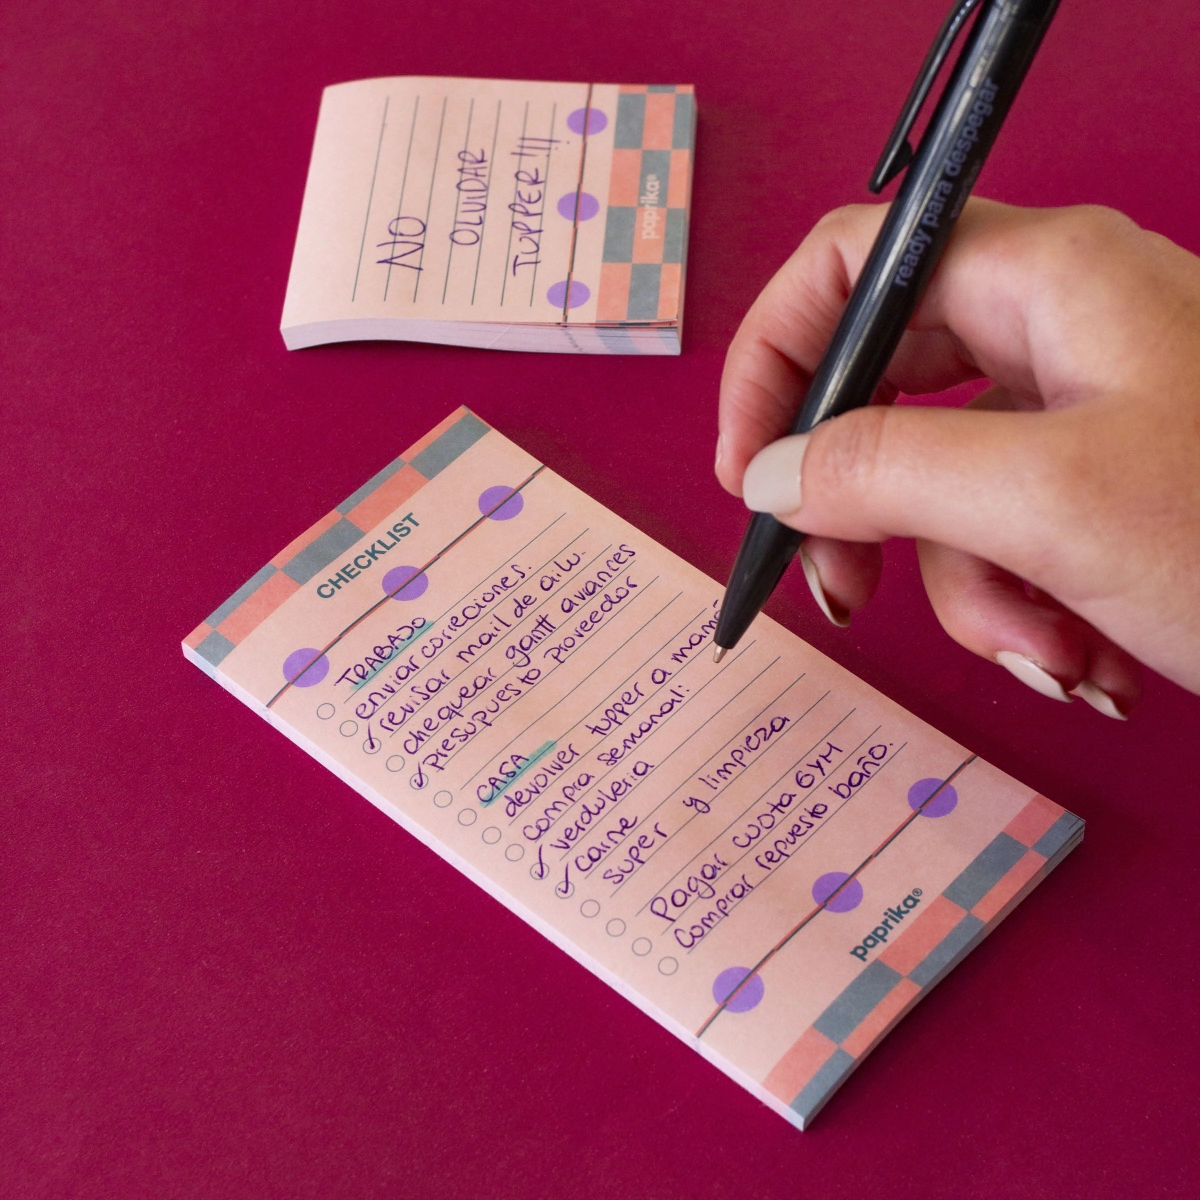 NO
OLVIDAR
TUPPER!!!
paprika®
ready para despegar
CHECKLIST
TRABAJO
enviar correciones.
✓ revisar mail de ailu.
chequear gantt avances
✓ presupuesto proveedor
CASA
devolver tupper a mamá
compra semanal:
✓ verduleria
✓ carne
super y limpieza
Pagar cuota GYM
Comprar repuesto baño.
paprika®